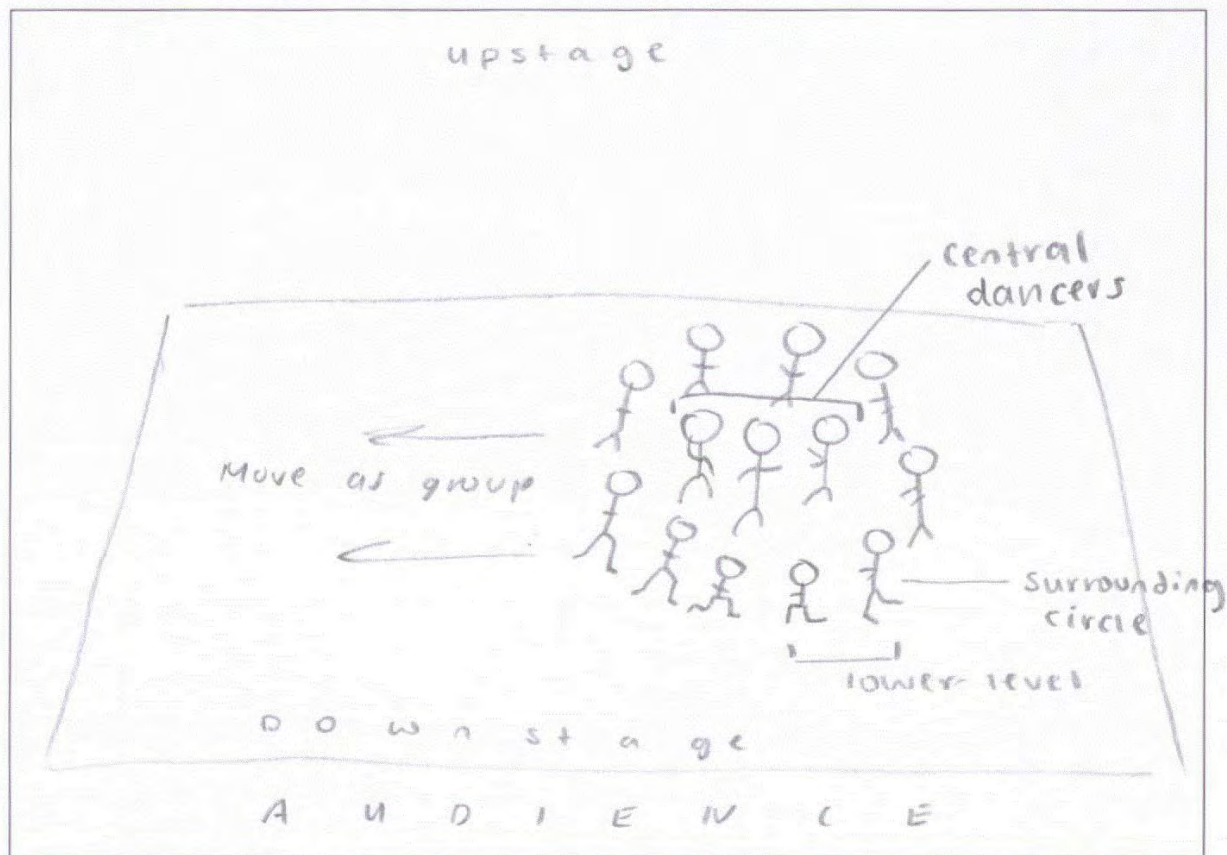 upstage
central
dancers
Move as group
surrounding
circle
lower level
Downstage
AUDIENCE